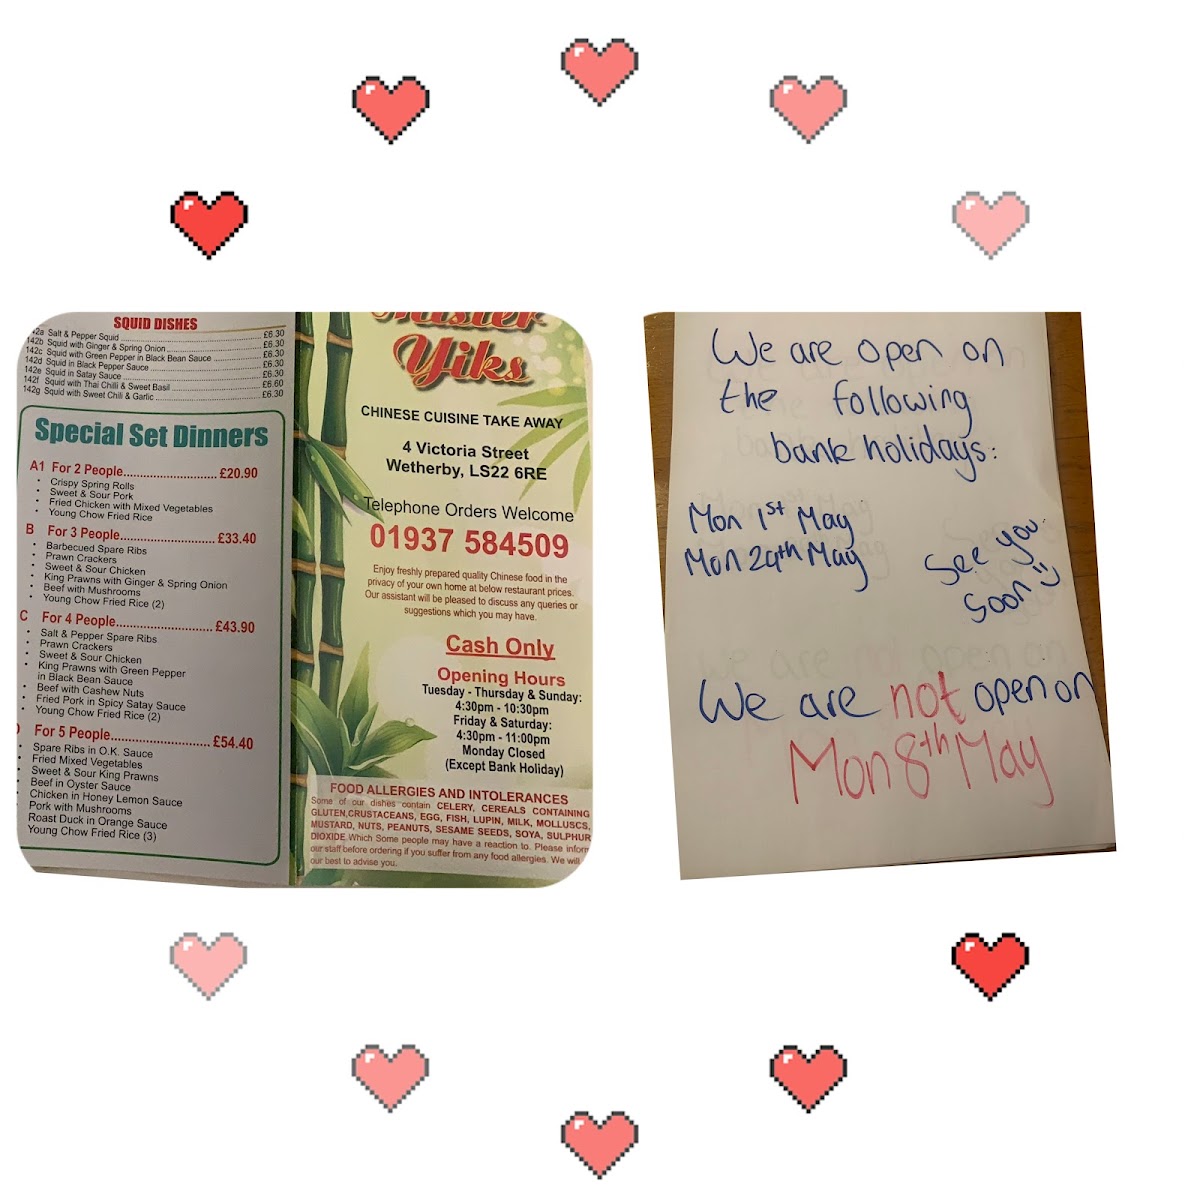 SQUID DISHES
142a Salt & Pepper Squid ........ £6.30
142b Squid with Ginger & Spring Onion ........ £6.30
142c Squid with Green Pepper in Black Bean Sauce ........ £6.30
142d Squid in Black Pepper Sauce ........ £6.30
142e Squid in Satay Sauce ........ £6.30
142f Squid with Thai Chilli & Sweet Basil ........ £6.60
142g Squid with Sweet Chili & Garlic ........ £6.30
Special Set Dinners
A1 For 2 People........ £20.90
• Crispy Spring Rolls
• Sweet & Sour Pork
• Fried Chicken with Mixed Vegetables
• Young Chow Fried Rice
B For 3 People........ £33.40
• Barbecued Spare Ribs
• Prawn Crackers
• Sweet & Sour Chicken
• King Prawns with Ginger & Spring Onion
• Beef with Mushrooms
• Young Chow Fried Rice (2)
C For 4 People........ £43.90
• Salt & Pepper Spare Ribs
• Prawn Crackers
• Sweet & Sour Chicken
• King Prawns with Green Pepper
in Black Bean Sauce
• Beef with Cashew Nuts
• Fried Pork in Spicy Satay Sauce
• Young Chow Fried Rice (2)
D For 5 People........ £54.40
Spare Ribs in O.K. Sauce
Fried Mixed Vegetables
Sweet & Sour King Prawns
Beef in Oyster Sauce
Chicken in Honey Lemon Sauce
Pork with Mushrooms
Roast Duck in Orange Sauce
Young Chow Fried Rice (3)
Mister
Yiks
CHINESE CUISINE TAKE AWAY
4 Victoria Street
Wetherby, LS22 6RE
Telephone Orders Welcome
01937 584509
Enjoy freshly prepared quality Chinese food in the
privacy of your own home at below restaurant prices.
Our assistant will be pleased to discuss any queries or
suggestions which you may have.
Cash Only
Opening Hours
Tuesday - Thursday & Sunday:
4:30pm - 10:30pm
Friday & Saturday:
4:30pm - 11:00pm
Monday Closed
(Except Bank Holiday)
FOOD ALLERGIES AND INTOLERANCES
Some of our dishes contain CELERY, CEREALS CONTAINING
GLUTEN,CRUSTACEANS, EGG, FISH, LUPIN, MILK, MOLLUSCS,
MUSTARD, NUTS, PEANUTS, SESAME SEEDS, SOYA, SULPHUR
DIOXIDE.Which Some people may have a reaction to. Please inform
our staff before ordering if you suffer from any food allergies. We will
our best to advise you.
We are open on
the following
bank holidays:
Mon 1st May
Mon 29th May
See you
soon :)
We are not open on
Mon 8th May